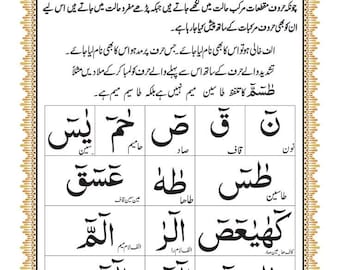 چونکہ حروف مقطعات مرکب حالت میں لکھے جاتے ہیں جبکہ پڑھے مفرد حالت میں جاتے ہیں اس لیے
ان کو بھی حروف مرکبات کے ساتھ پیش کیا جا رہا ہے۔
الف خالی ہو تو اس کا بھی نام لیا جائے۔ جس حرف پر مد ہو اس کا بھی نام لیا جائے۔
تشدید والے حرف کے ساتھ اس سے پہلے والے حرف کو لمبا کر کے ملا دیں مثلاً
طٰسٓمّٓ کا تلفظ طا سین میم نہیں ہے بلکہ طا سیم میم ہے۔
نٓ قٓ صٓ حٰمٓ یٰسٓ
نون قاف صاد حامیم یاسین
طٰسٓ طٰهٰ عٓسٓقٓ
طاسین طاها عین سین قاف
كٓهٰيٰعٓصٓ الٓرٰ الٓمّٓ
کاف ها یا عین صاد الف لام را الف لام میم